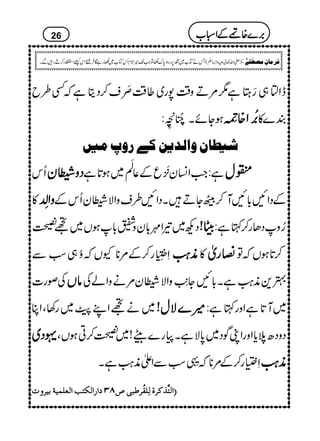 26
برے خاتمے کے اسباب
فرمانِ مصطفٰے
ڈالتا ہی رَہتا ہے مگر مرتے وَقت پوری طاقت صَرف کردیتا ہے کہ کسی طرح
بندے کا بُرا خاتمہ ہوجائے۔ چُنانچِہ
شیطان والدین کے روپ میں
منقول ہے: جب انسان نَزع کے عالَم میں ہوتا ہے دو شیطان اُس
کے دائیں بائیں آکر بیٹھ جاتے ہیں۔ دائیں طرف والا شیطان اُس کے والِد کا
رُوپ دھار کر کہتا ہے: بیٹا! دیکھ میں تیرا مہربان و شفیق باپ ہوں میں تجھے نصیحت
کرتا ہوں کہ تو نصاریٰ کا مذہب اِختِیار کر کے مرنا کیوں کہ وُہی سب سے
بہترین مذہب ہے۔ بائیں جانِب والا شیطان مرنے والے کی ماں کی صورت
میں آتا ہے اور کہتا ہے: میرے لال! میں نے تجھے اپنے پیٹ میں رکھا، اپنا
دودھ پلایا اور اپنی گود میں پالا ہے۔ پیارے بیٹے! میں نصیحت کرتی ہوں، یہودی
مذہب اِختِیار کر کے مرنا کہ یہی سب سے اعلیٰ مذہب ہے۔
(التَّذکرۃ لِلْقُرطبی ص۳۸ دارالکتب العلمیۃ بیروت